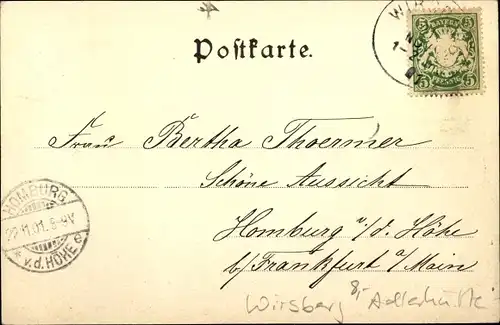 Postkarte.
WIR
BAYERN
5 5
5 PFENNIG 5
Frau Bertha Thoermer
Schöne Aussicht
Homburg v/d. Höhe
b/Frankfurt a/Main
HOMBURG
22.11.01. 8-9V
* v.d. HÖHE e
Wirsberg 8,- Adlerhütte